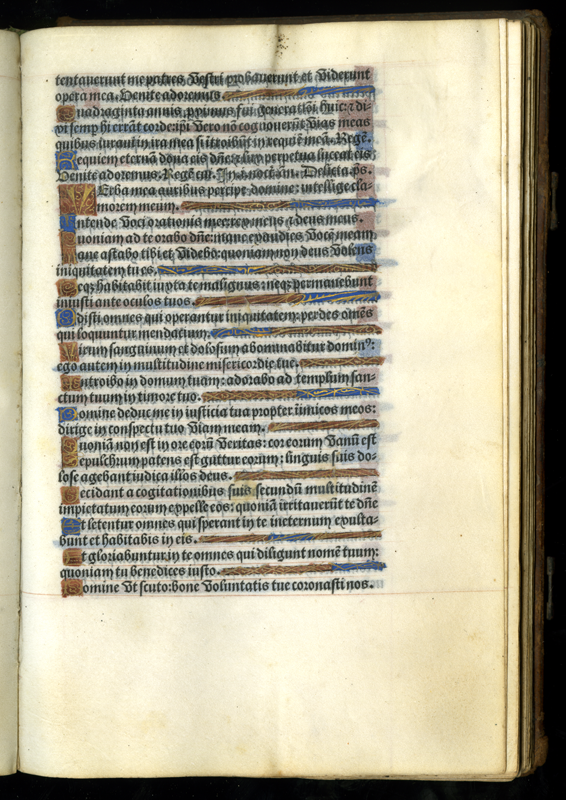 tentauerunt me patres Vestri probauerunt et Viderunt
opera mea. Venite adoremus
Quadraginta annis proximus fui generatiōi huic: ⁊ di-
xi semp hi errāt corde: ipi Vero nō cognouerūt Vias meas
quibus iuraui in ira mea si ītroibūt in requiē meā. Regē.
Requiem eternā dona eis dn̄e: ⁊ lux perpetua luceat eis:
Venite adoremus. Regē cui. In .i. noct. an. Delicta. ps.
VErba mea auribus percipe domine: intellige cla-
morem meum.
Intende Voci orationis mee: rex meus ⁊ deus meus.
Quoniam ad te orabo dn̄e: mane exaudies Vocē meam
Mane astabo tibi et Videbo: quoniam non deus Volens
iniquitatem tu es.
Neq; habitabit iuxta te malignus: neq; permanebunt
iniusti ante oculos tuos.
Odisti omnes qui operantur iniquitatem: perdes oēs
qui loquuntur mendatium.
Virum sanguinum et dolosum abominabitur domin⁹:
ego autem in multitudine misericordie tue.
Introibo in domum tuam: adorabo ad templum san-
ctum tuum in timore tuo.
Domine deduc me in iusticia tua propter īimicos meos:
dirige in conspectu tuo Viam meam.
Quoniā non est in ore eorū Veritas: cor eorum Vanū est
Sepulchrum patens est guttur eorum: linguis suis do-
lose agebant iudica illos deus.
Decidant a cogitationibus suis secundū multitudinē
impietatum eorum expelle eos: quoniā irritauerūt te dn̄e
Et letentur omnes qui sperant in te in eternum exulta-
bunt et habitabis in eis.
Et gloriabuntur in te omnes qui diligunt nomē tuum:
quoniam tu benedices iusto.
Domine Vt scuto: bone Voluntatis tue coronasti nos.